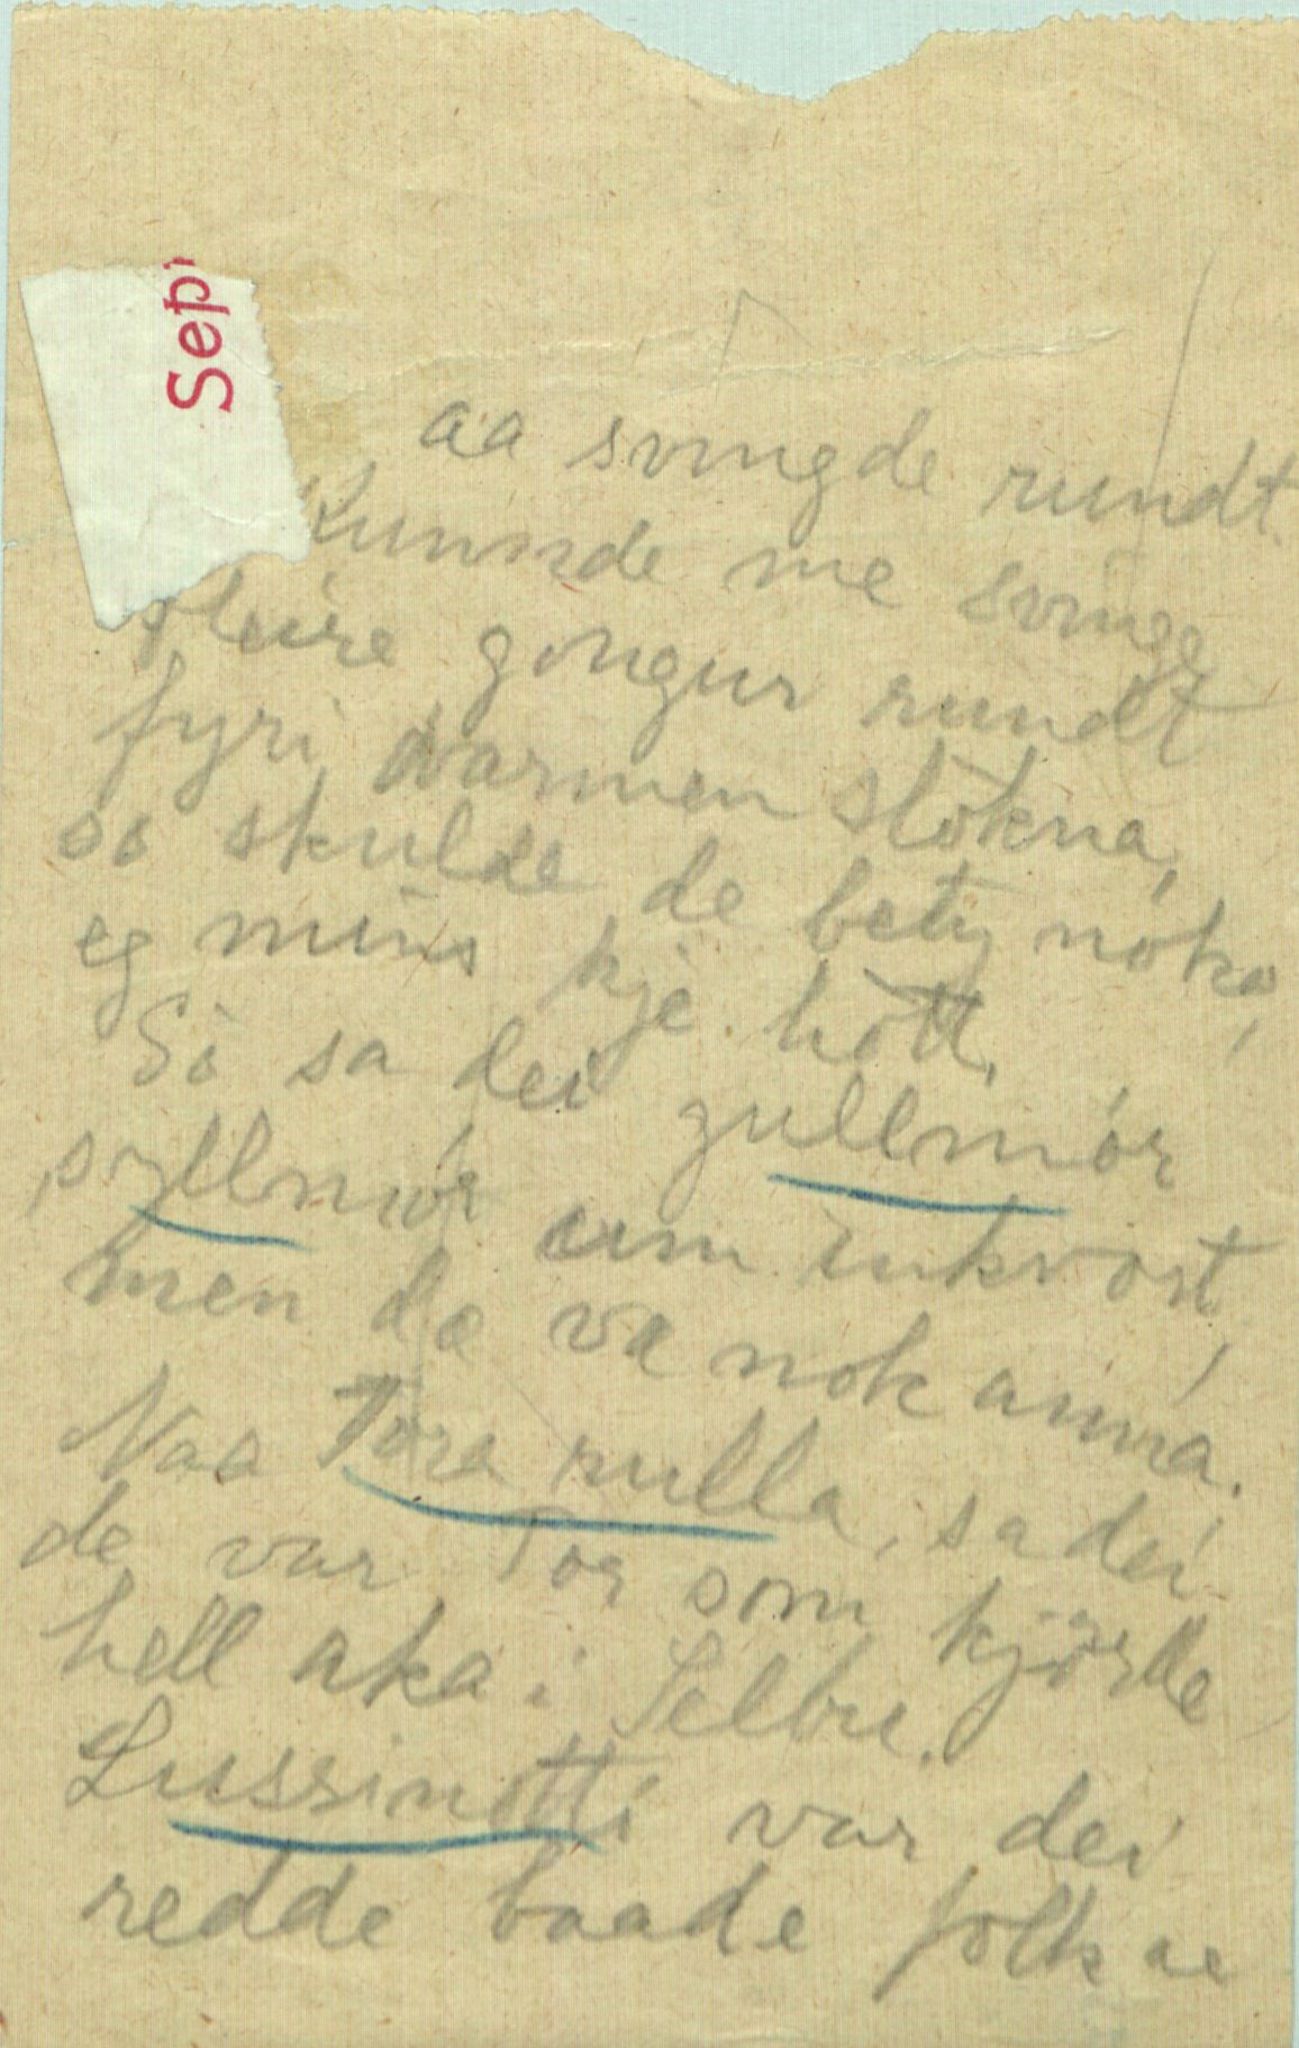 Sep
aa svingde rundt.
Kunnde me svinge
fleire gongur rundt
fyri varmen slökna,
so skulde de bety noko,
eg mins kje hött.
So sa dei gullmór
syllmór um inkvort,
men da va nok anna.
Naa Tora rulla, sa dei
de var Tor som kjörde
hell aka i Selbu.
Lussinotti var dei
redde baade folk ae